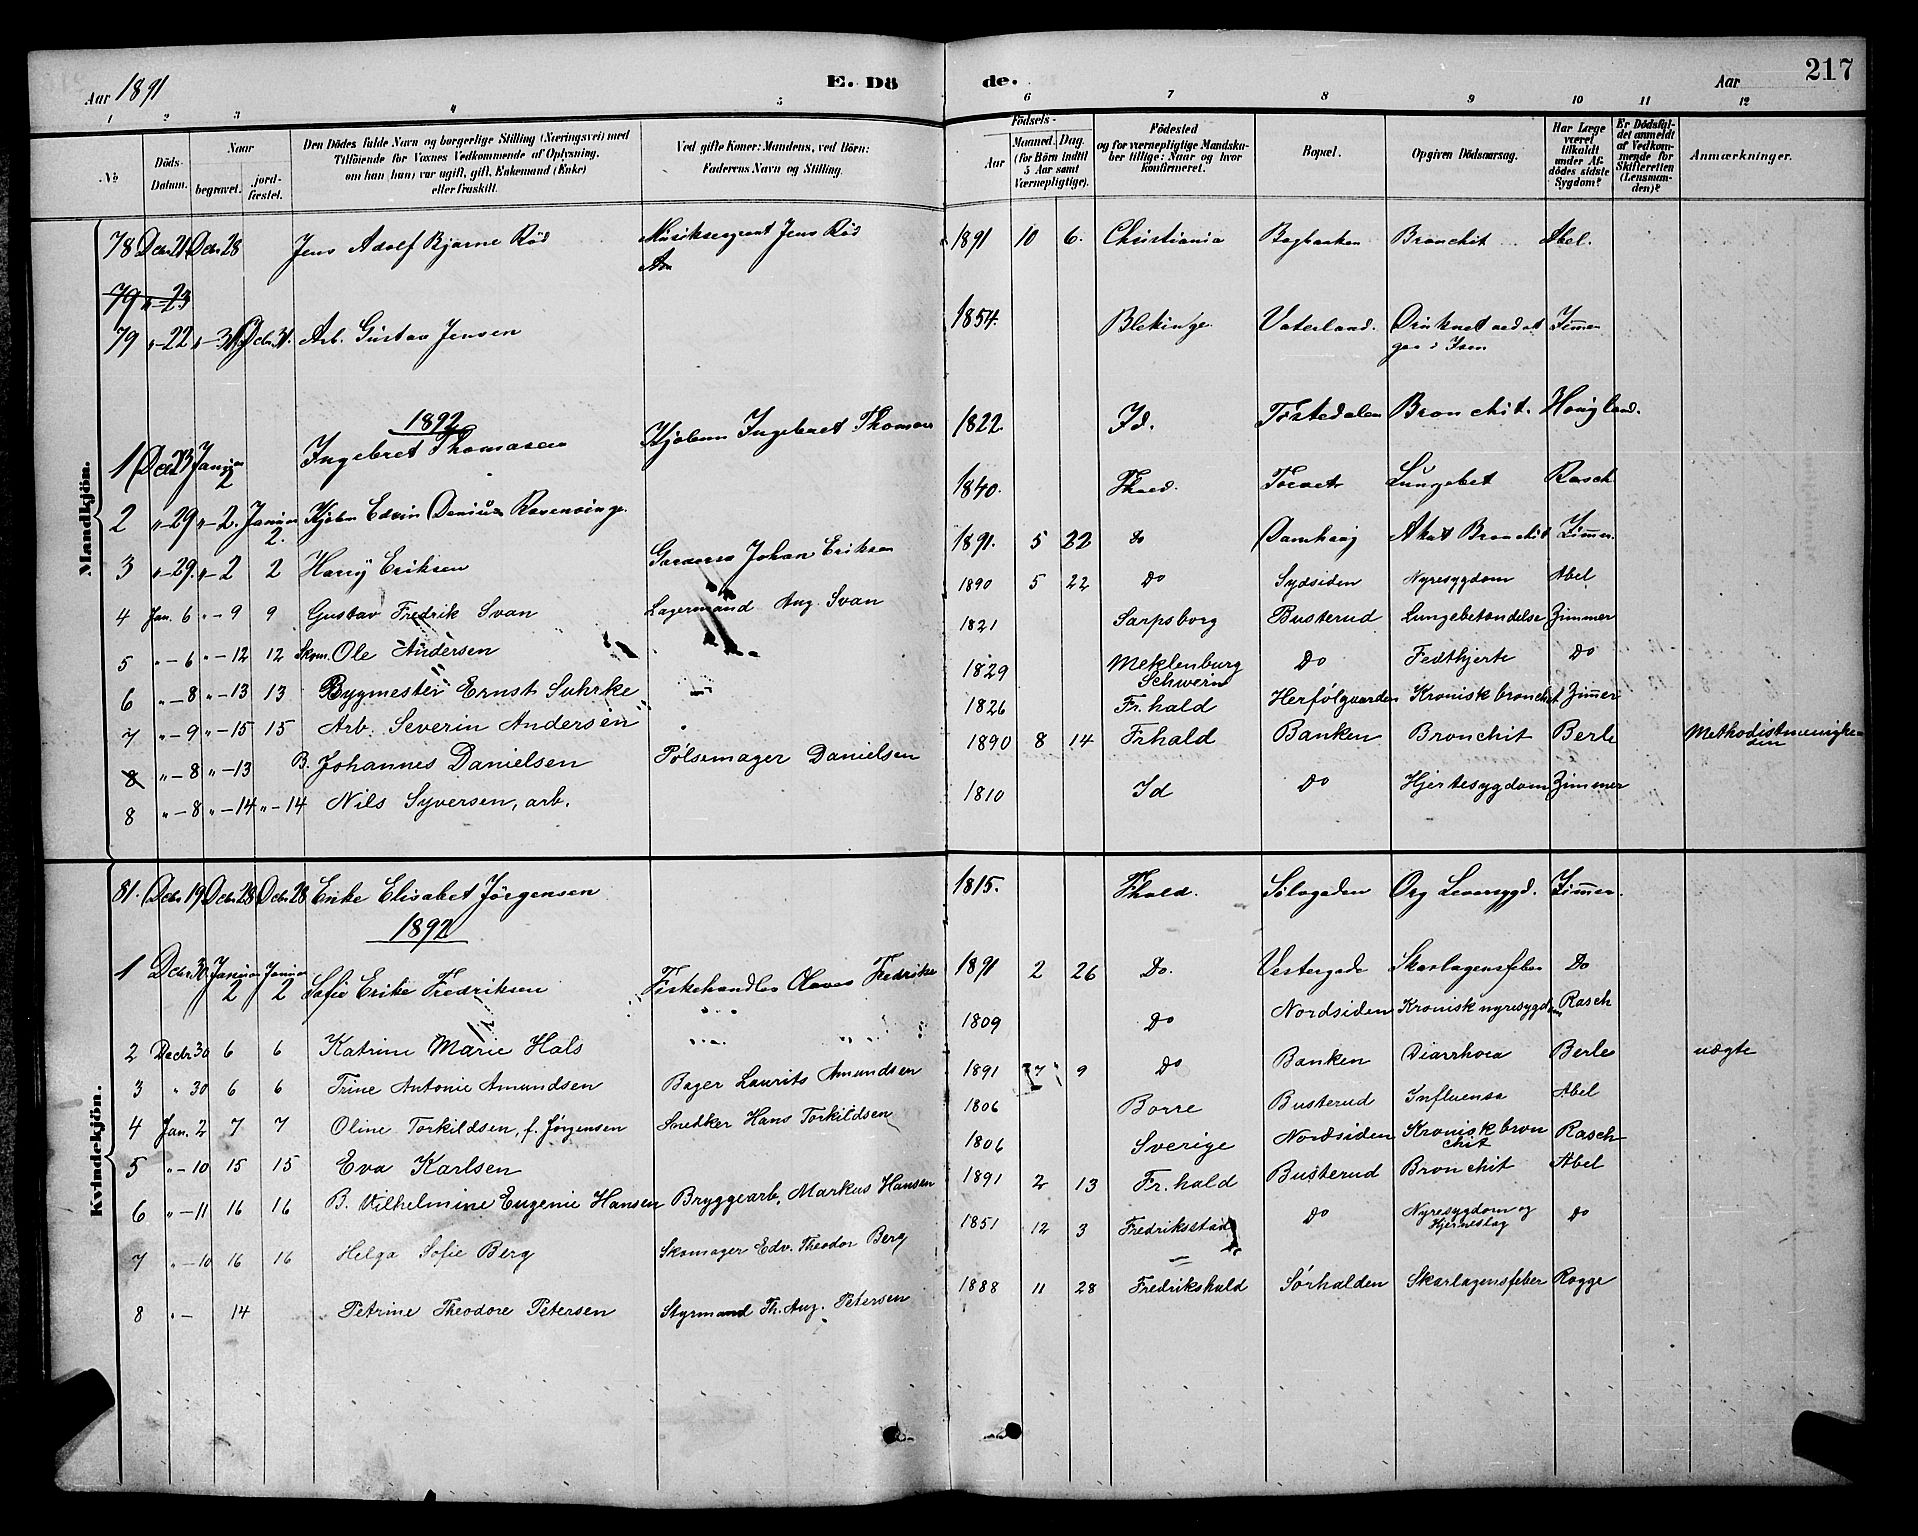 Aar 1891 E. Dö de. Aar 217
1 2 3 4 5 6 7 8 9 10 11 12
No Döds-Datum. Naar begravet. jord-fæstet. Den Dödes fulde Navn og borgerlige Stilling (Næringsvei) med Tilföiende for Voxnes Vedkommende af Oplysning, om han (hun) var ugift, gift, Enkemand (Enke) eller fraskilt. Ved gifte Koner: Mandens, ved Börn: Faderens Navn og Stilling. Födsels- Aar Maaned. Dag. (for Börn indtil 5 Aar samt Værnepligtige). Födested og for værnepligtige Mandskaber tillige: Naar og hvor konfirmeret. Bopæl. Opgiven Dödsaarsag. Har Læge været tilkaldt under Afdödes sidste Sygdom? Er Dödsfaldet anmeldt af Vedkommende for Skifteretten (Lensmanden)? Anmærkninger.
Mandkjön.
78 Decbr. 21 Decbr. 28 Jens Adolf Bjarne Röd Musiksergeant Jens Röd 1891 10 6. Christiania Bagbanken Bronchit Abel.
79 " - 23
79 " - 22 " - 31 Decbr. 31. Arb. Gustav Jensen 1854. Blekinge. Vaterland. Druknet ved at gaa i Isen Zimmer
1892
1 Decbr. 23 Januar 2 Ingebret Thomasen Ingebret Thomasen 1822. Id. Tistedalen Bronchit. Hougland.
2 " - 29 " - 2. Januar 2. Edvin 1840. Fhald. Torvet Lungebet Rasch
3 " - 29. " - 2 2 Harry Eriksen Johan Eriksen 1891. 5 22 do Damhaug Akut Bronchit Zimmer.
4 Jan. 6 " - 9 9 Gustav Fredrik Svan Lagermand Aug. Svan 1890 5 22 Do Sydsiden Nyresygdom Abel
5 " - 6 " - 12 12 Skom. Ole Andersen 1821 Sarpsborg Busterud Lungebetændelse Zimmer
6 " - 8 " - 13 13 Bygmester Ernst Suhrke 1829 Meklenburg Schwerin Do Fedthjerte Do
7 " - 9 " - 15 15 Arb. Severin Andersen 1826 Fr.hald Herfølgaarden Kronisk bronchit Zimmer
8 " - 8 " - 13 B. Johannes Danielsen Pølsemager Danielsen 1890 8 14 Frhald Banken Bronchit Berle Methodistmenigheden
8 " - 8 " - 14 " - 14 Nils Syversen, arb. 1810 Id Do Hjertesygdom Zimmer
Kvindekjön.
81. Decbr. 19 Decbr. 28 Decbr. 28 Enke Elisabet Jörgensen 1815. Fhald. Sölvgaden Org Leversygd. Zimmer.
1892
1 Decbr. 30 Januar 2 Januar 2 Sofie Erike Fredriksen Fiskehandler Olaves Fredrikse 1891 2 26 Do. Vestergade Skarlagensfeber Do
2 Decbr. 30 6 6 Katrine Marie Hals 1809 Do Nordsiden Kronisk nyresygdom Rasch
3 " 30 6 6 Trine Antonie Amundsen Bager Laurits Amundsen 1891 7 9 Do Banken Diarrhoea Berle uægte
4 Jan. 2 7 7 Oline Torkildsen, f. Jørgensen Snedker Hans Torkildsen 1806 Borre Busterud Influensa Abel
5 " - 10 15 15 Eva Karlsen 1806 Sverige Nordsiden Kronisk bronchit Rasch
6 " - 11 16 16 B. Vilhelmine Eugenie Hansen Bryggearb. Markus Hansen 1891 2 13 Fr.hald Busterud Bronchit Abel
7 " - 10 16 16 Helga Sofie Berg Skomager Edv. Theodor Berg 1851 12 3 Fredriksstad Do Nyresygdom og Hjerneslag Do
8 " - 14 Petrine Theodore Petersen Styrmand Th. Aug. Petersen 1888 11 28 Fredrikshald Sørhalden Skarlagensfeber Rogge